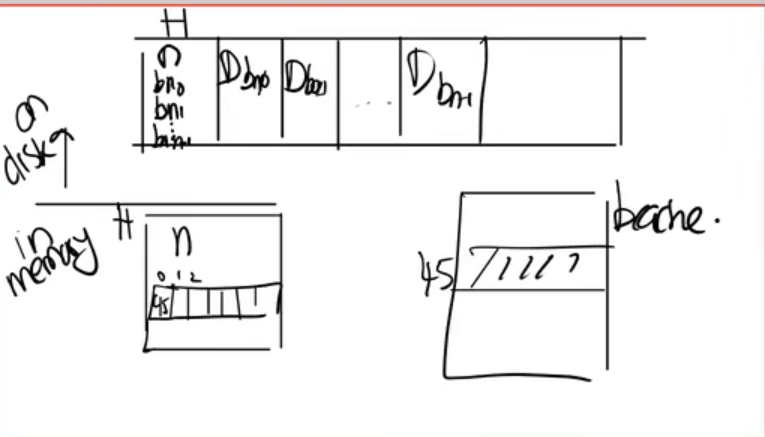 H
n
bn0
bn1
D bn0
D bn1
. . . .
D bn-1
on
disk
in
memory
H
n
0 1 2
45
45
bcache.